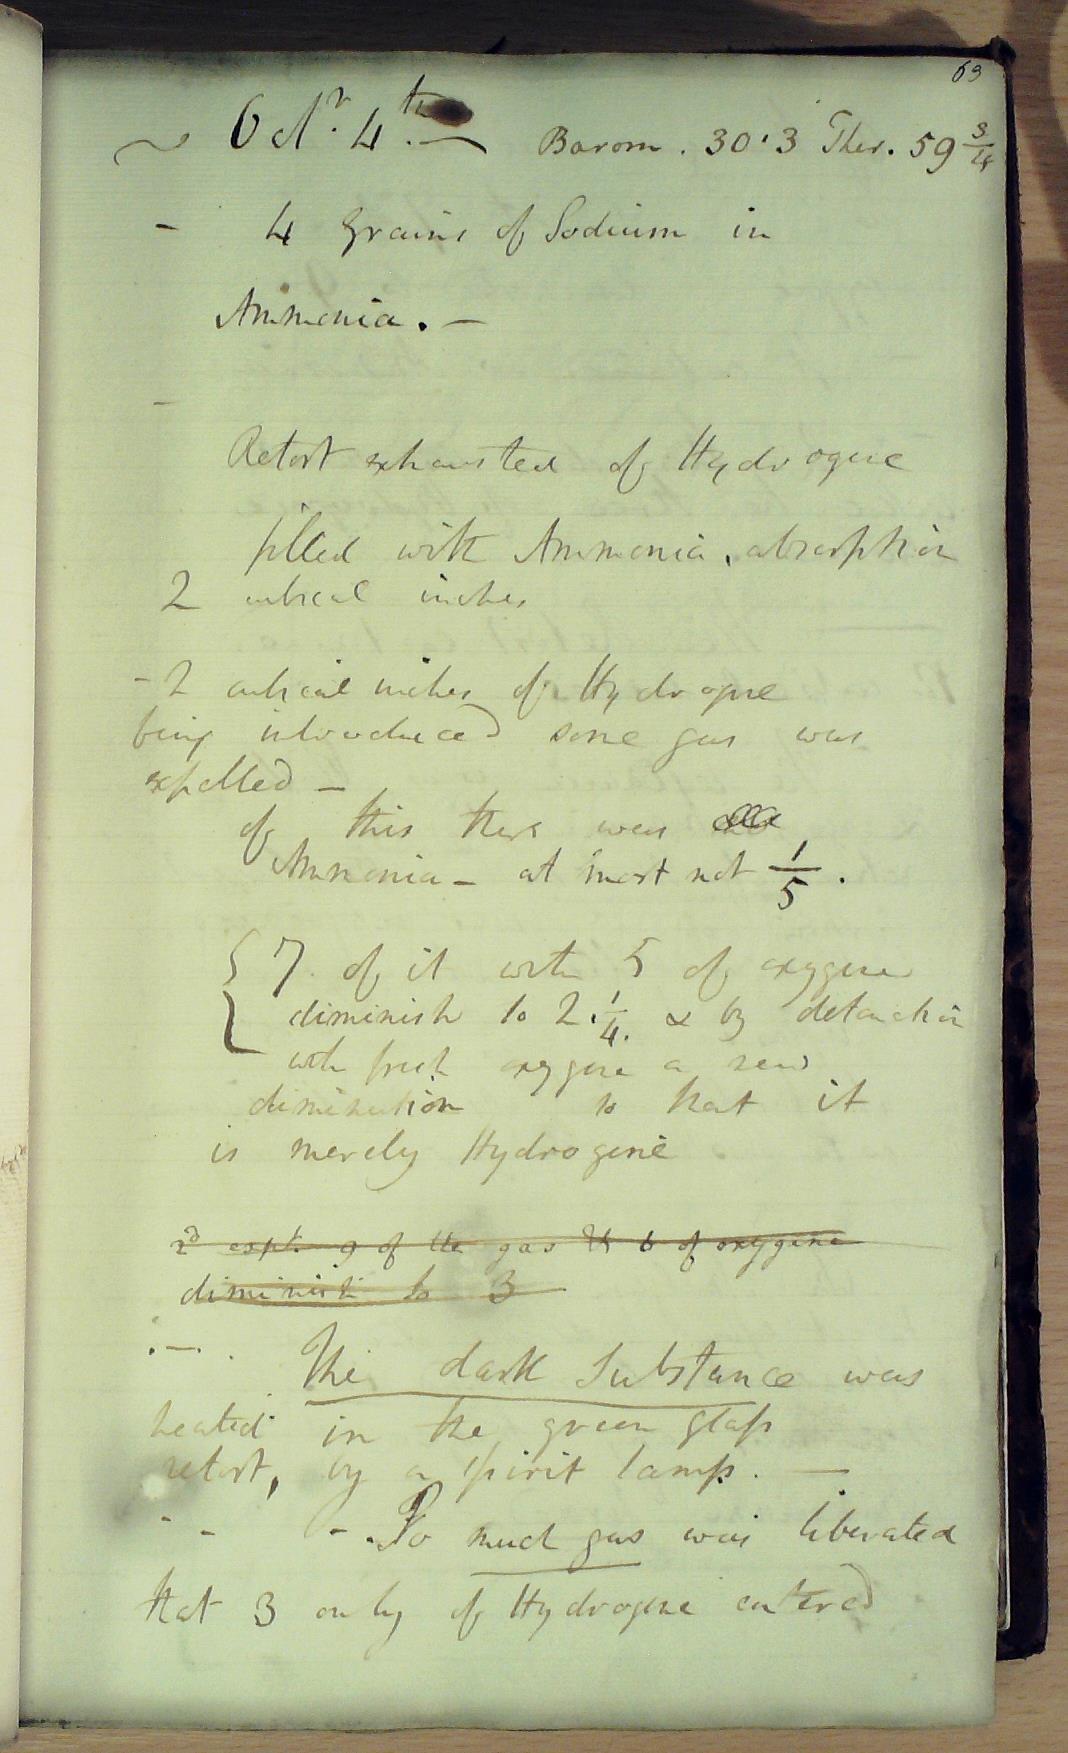 63
~ Octr. 4th. — Barom. 30.3 Ther. 59 3/4
- 4 Grains of Sodium in
Ammonia. —
-
Retort exhausted of Hydrogene
filled with Ammonia, absorption
2 cubical inches
- 2 cubical inches of Hydrogene
being introduced some gas was
expelled —
of this there was
Ammonia - at most not 1/5.
{ 7. of it with 5 of oxygene
diminish to 2 1/4. & by detonation
with fresh oxygene a new
diminution so that it
is merely Hydrogene
2d expt. 9 of the gas & 6 of oxygene
diminish to 3
.—. The dark Substance was
heated in the green glass
retort, by a spirit lamp. —
- - - So much gas was liberated
that 3 only of Hydrogene entered